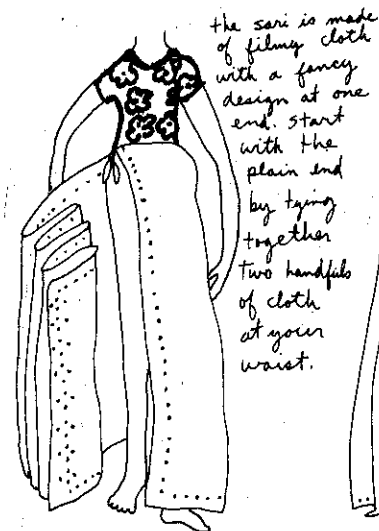 the sari is made
of filmy cloth
with a fancy
design at one
end. start
with the
plain end
by tying
together
two handfuls
of cloth
at your
waist.